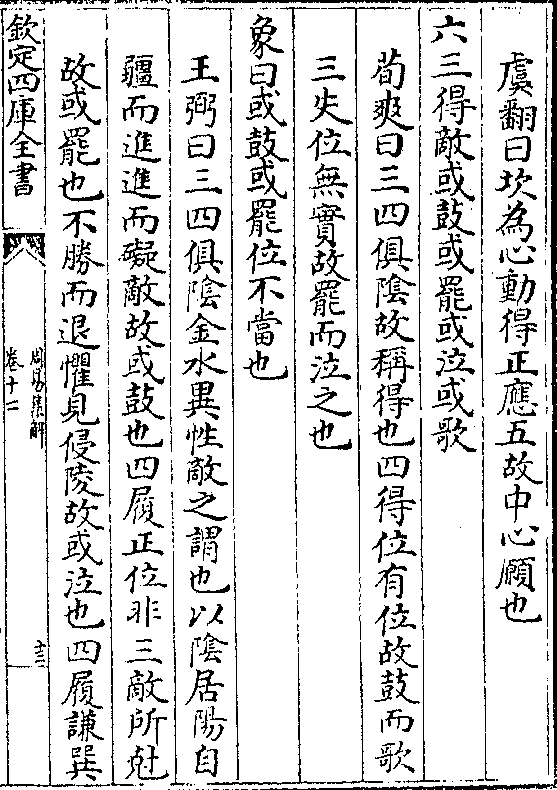 虞翻曰坎為心動得正應五故中心願也
六三得敵或鼓或罷或泣或歌
荀爽曰三四俱陰故稱得也四得位有位故鼓而歌
三失位無實故罷而泣之也
象曰或鼓或罷位不當也
王弼曰三四俱陰金水異性敵之謂也以陰居陽自
疆而進進而礙敵故或鼓也四履正位非三敵所尅
故或罷也不勝而退懼見侵陵故或泣也四履謙巽
欽定四庫全書
周易集解
卷十二
十三